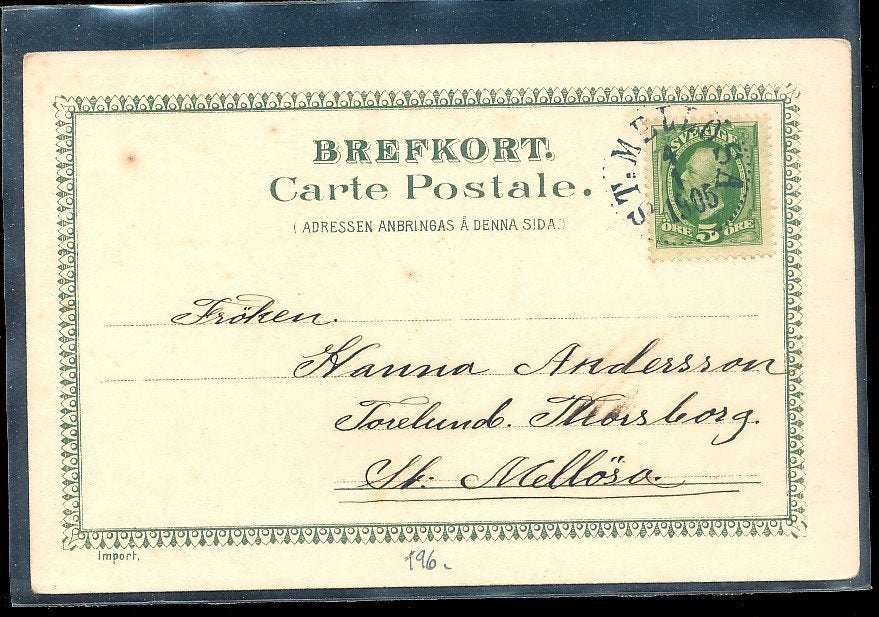 BREFKORT.
Carte Postale.
(ADRESSEN ANBRINGAS Å DENNA SIDA.)
ST: MELLÖSA
4
1
1905
SVERIGE
ÖRE 5 ÖRE
Fröken.
Hanna Andersson
Torelund. Thorsborg.
St: Mellösa.
Import.
196.